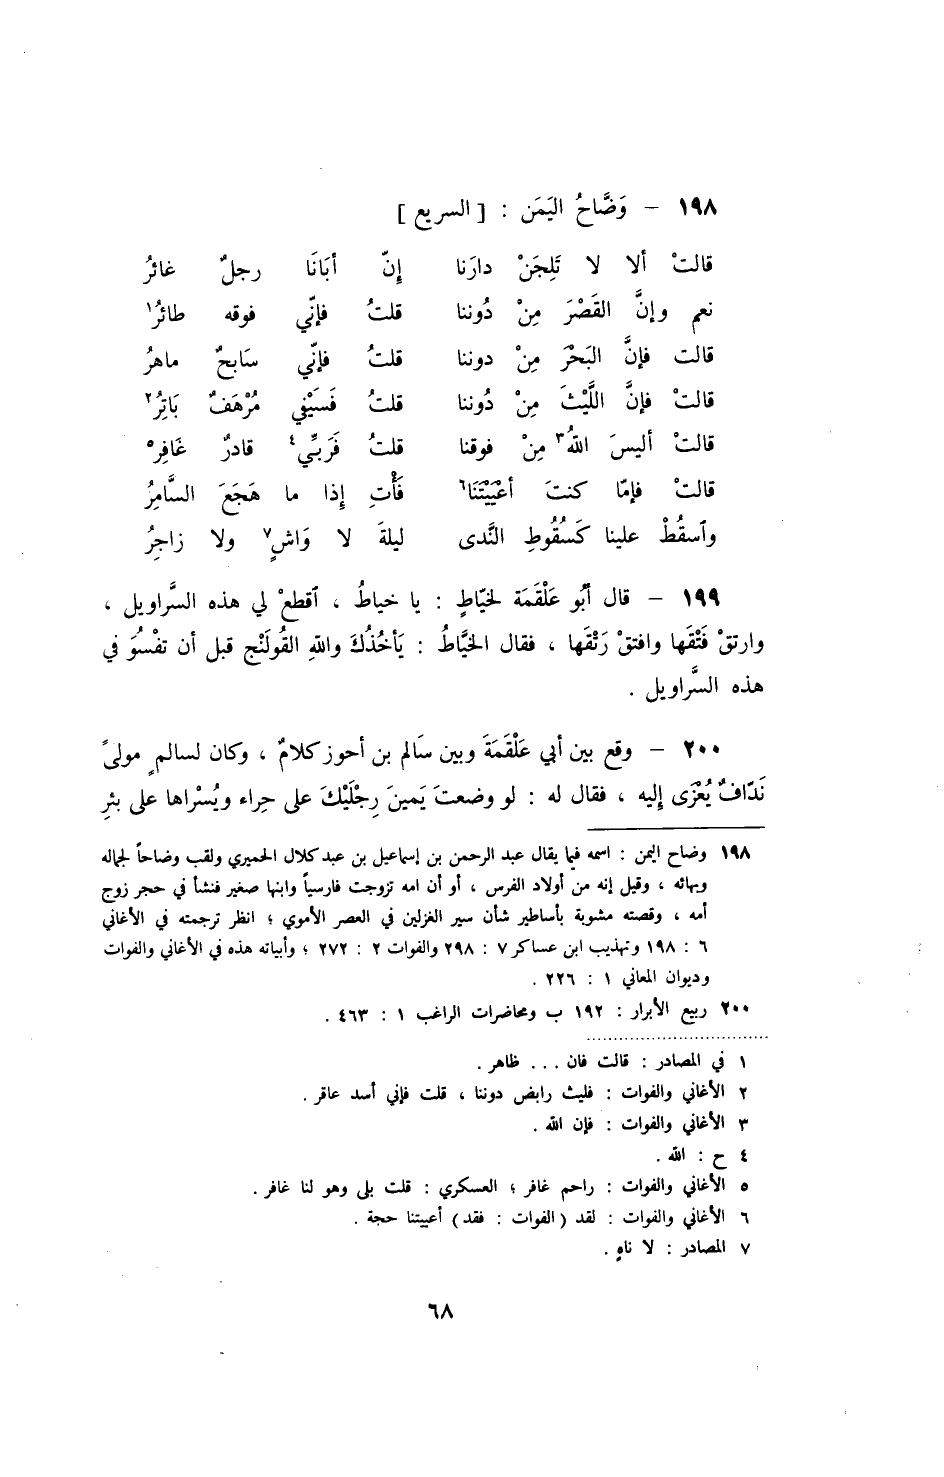 ١٩٨ – وَضَّاحُ اليَمَن : [ السريع ]
قالتْ ألا لا تَلِجَنْ دارَنا إِنّ أبَانَا رجلٌ غائرُ
نعم وإنَّ القَصْرَ مِنْ دُوننا قلتُ فإنّي فوقه طائرُ١
قالت فإنَّ البَحْرَ مِنْ دوننا قلتُ فإنّي سَابحٌ ماهرُ
قالتْ فإنَّ اللَّيْثَ مِنْ دُوننا قلتُ فَسَيْفي مُرْهَفٌ بَاتِرُ٢
قالتْ أليسَ اللهُ٣ مِنْ فوقنا قلتُ فَرَبِّي٤ قادرٌ غَافِر٥
قالتْ فإمّا كنتَ أعْيَيْتَنَا٦ فَأْتِ إذا ما هَجَعَ السَّامِرُ
وٱسقُطْ علينا كَسُقُوطِ النَّدى ليلةَ لا وَاشٍ٧ ولا زاجِرُ
١٩٩ – قال أبُو عَلْقَمَة لخيّاطٍ : يا خياطُ ، ٱقطعْ لي هذه السَّراويل ،
وارتقْ فَتْقَها وافتقْ رَتْقَها ، فقال الخَيَّاطُ : يَأخُذُكَ واللهِ القُولَنْج قبل أن تفْسُوَ في
هذه السَّراويل .
٢٠٠ – وقع بين أبي عَلْقَمَةَ وبين سَالم بن أحوز كلامٌ ، وكان لسالمٍ مولىً
نَدّافٌ يُعْزَى إليه ، فقال له : لو وضعتَ يَمينَ رِجْلَيْكَ على حِراء ويُسْراها على بئرِ
١٩٨ وضاح اليمن : اسمه فيما يقال عبد الرحمن بن إسماعيل بن عبد كلال الحميري ولقب وضاحاً لجماله
وبهائه ، وقيل إنه من أولاد الفرس ، أو أن امه تزوجت فارسياً وابنها صغير فنشأ في حجر زوج
أمه ، وقصته مشوبة بأساطير شأن سير الغزلين في العصر الأموي ؛ انظر ترجمته في الأغاني
٦ : ١٩٨ وتهذيب ابن عساكر ٧ : ٢٩٨ والفوات ٢ : ٢٧٢ ؛ وأبياته هذه في الأغاني والفوات
وديوان المعاني ١ : ٢٢٦ .
٢٠٠ ربيع الأبرار : ١٩٢ ب ومحاضرات الراغب ١ : ٤٦٣ .
١ في المصادر : قالت فان ... ظاهر .
٢ الأغاني والفوات : فليث رابض دوننا ، قلت فإني أسد عاقر .
٣ الأغاني والفوات : فإن الله .
٤ ح : الله .
٥ الأغاني والفوات : راحم غافر ؛ العسكري : قلت بلى وهو لنا غافر .
٦ الأغاني والفوات : لقد ( الفوات : فقد ) أعييتنا حجة .
٧ المصادر : لا ناهٍ .
٦٨